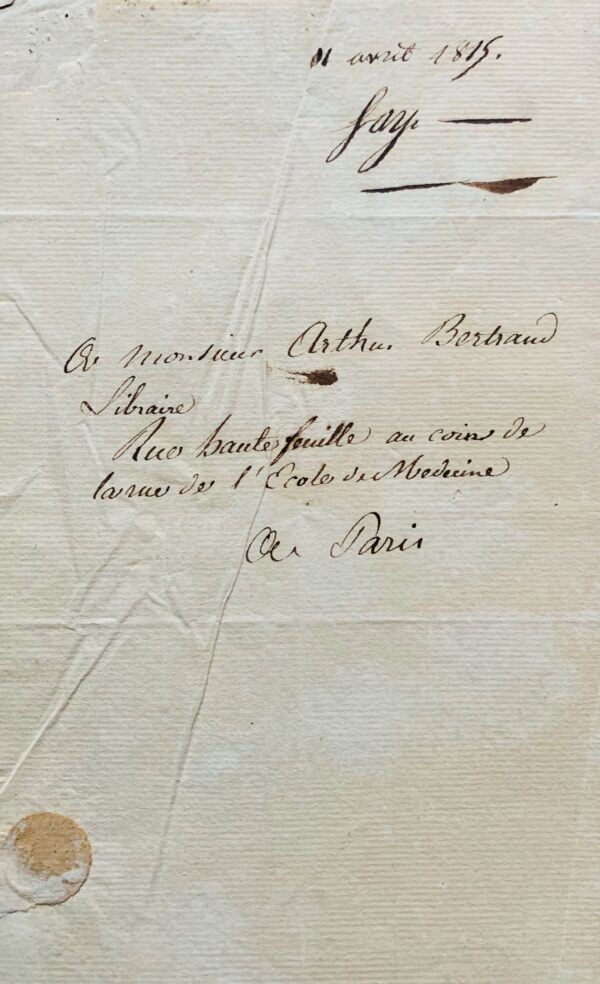 avril 1815.
Say
A monsieur Arthus Bertrand
Libraire
Rue hautefeuille au coin de
la rue de l'Ecole de Medecine
A Paris